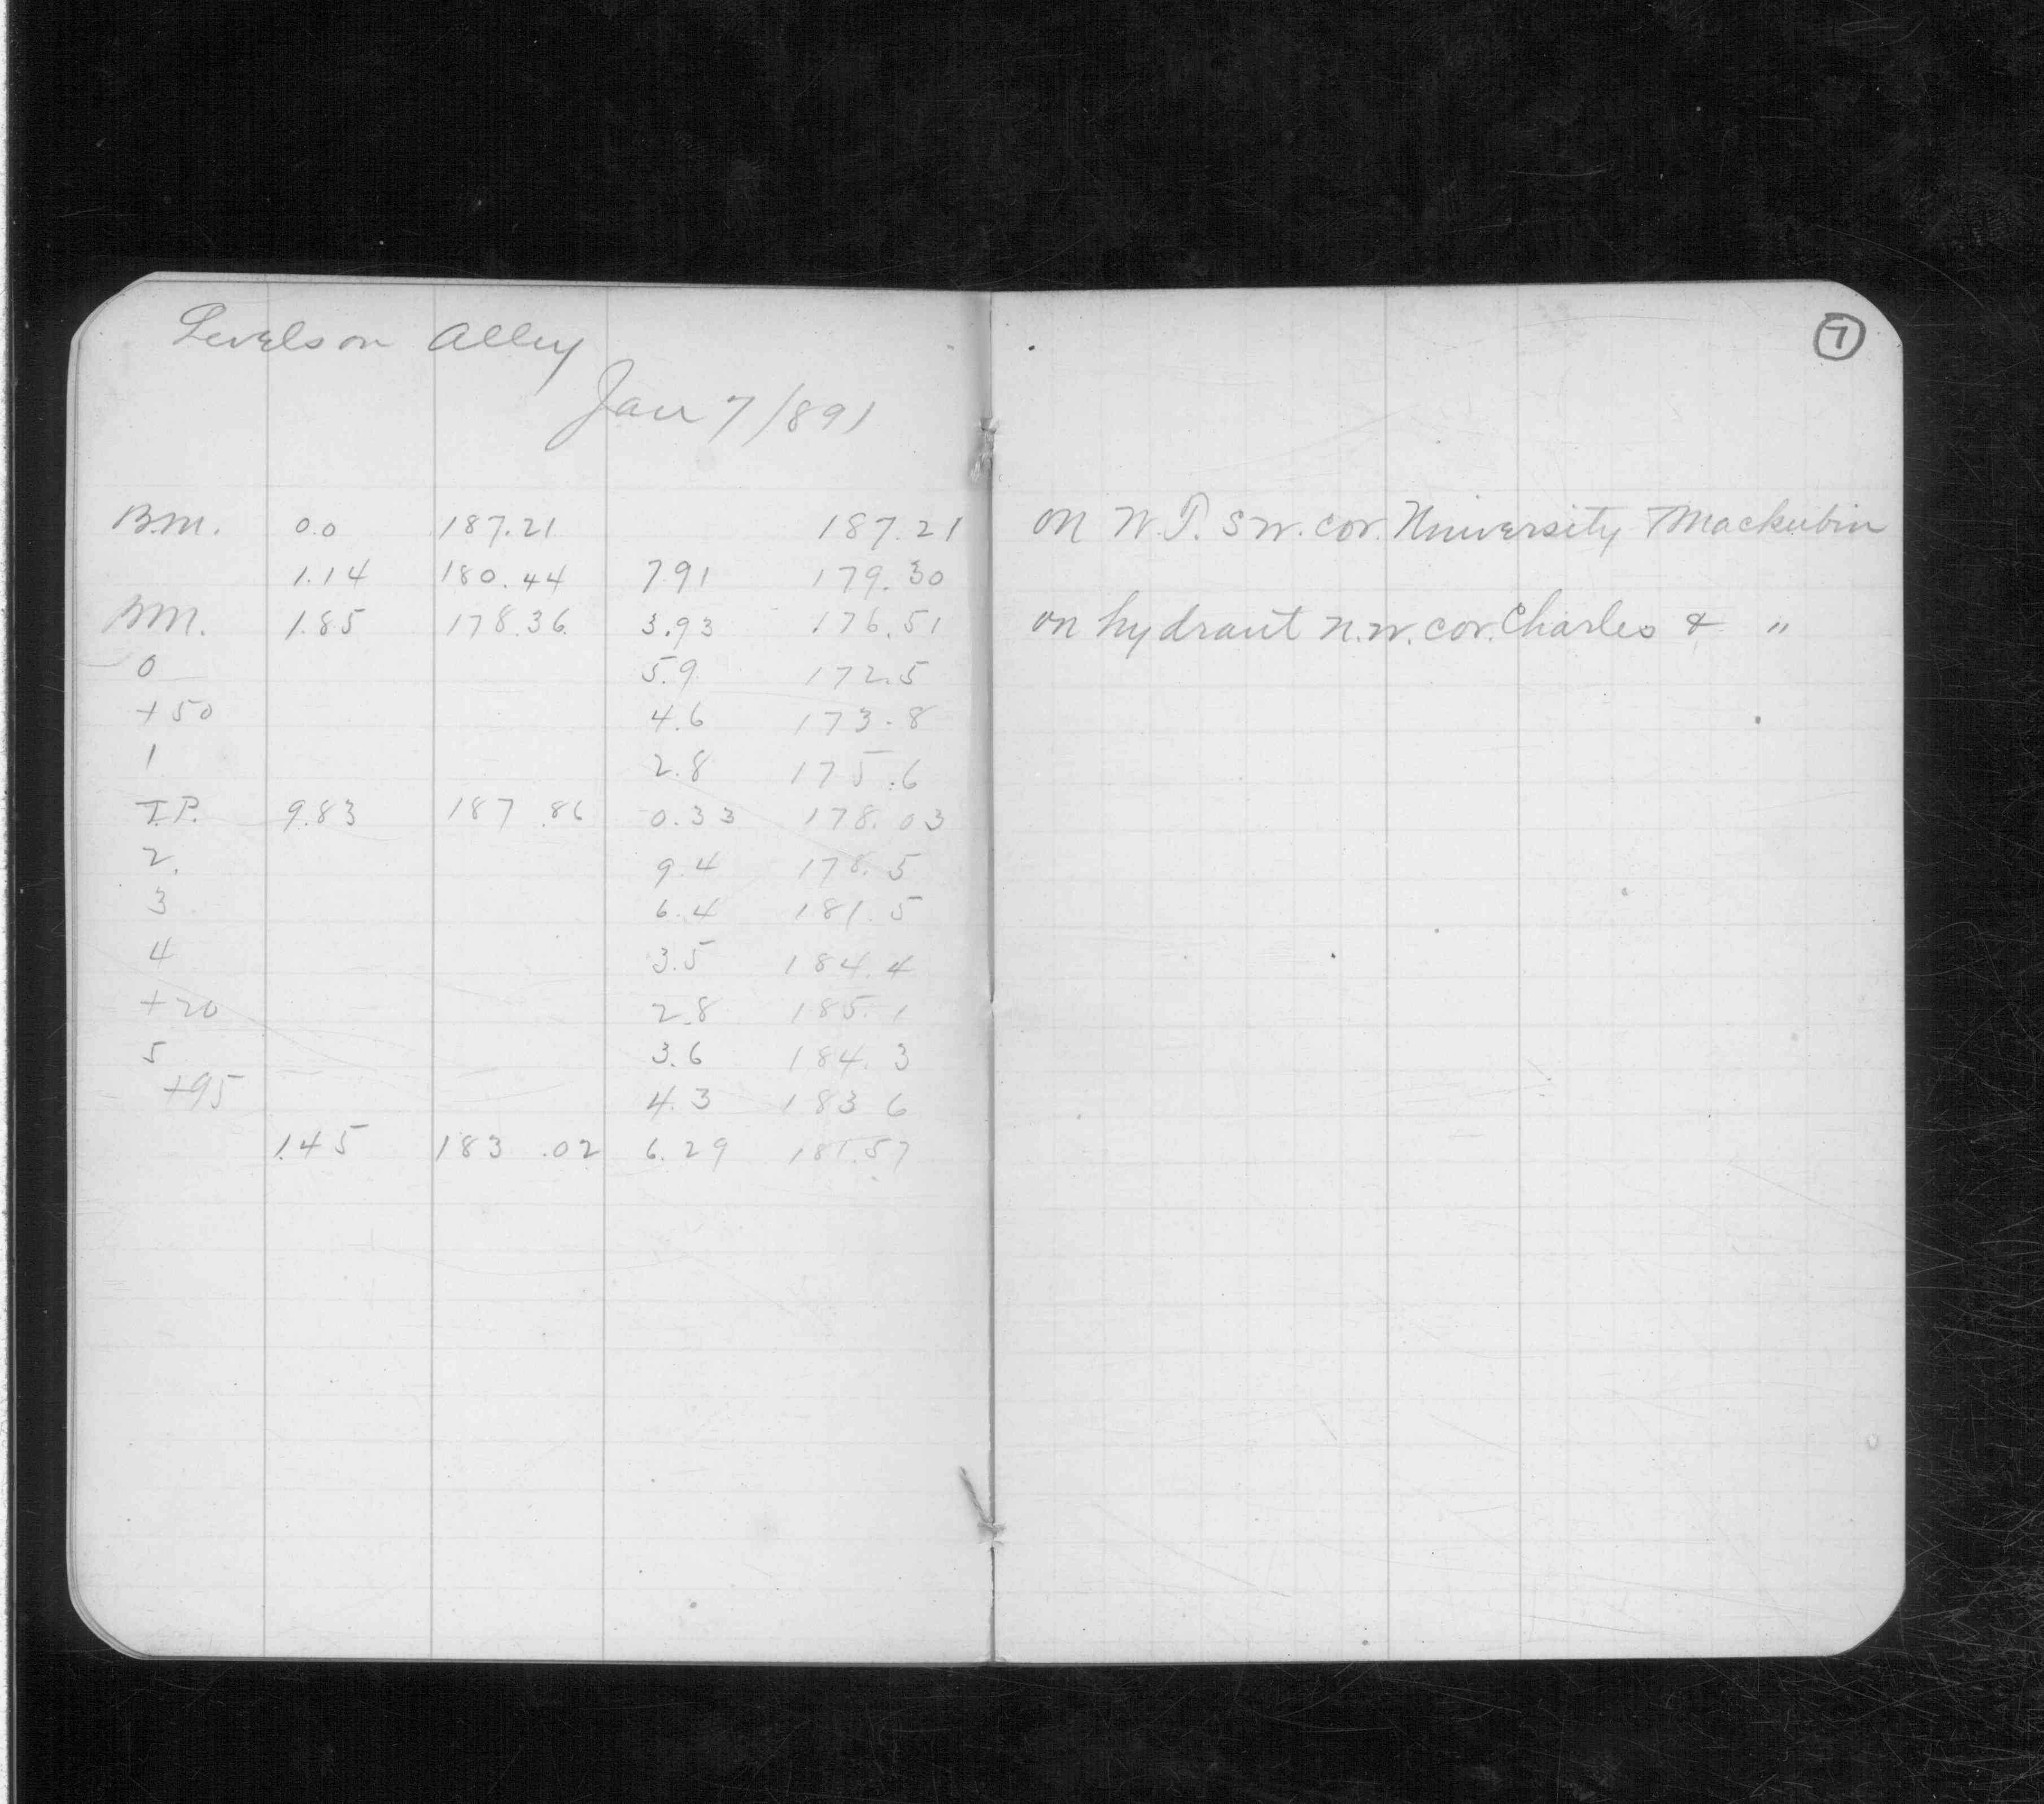 Levels on Alley
Jan 7/891
7
B.M. 0.0 187.21 187.21 on W.T. S.W. cor. University & Mackubin
1.14 180.44 7.91 179.30
B.M. 1.85 178.36 3.93 176.51 on hydrant N.W. cor. Charles & "
0 5.9 172.5
+50 4.6 173.8
1 2.8 175.6
T.P. 9.83 187.86 0.33 178.03
2. 9.4 178.5
3 6.4 181.5
4 3.5 184.4
+20 2.8 185.1
5 3.6 184.3
+95 4.3 183 6
1.45 183.02 6.29 181.57